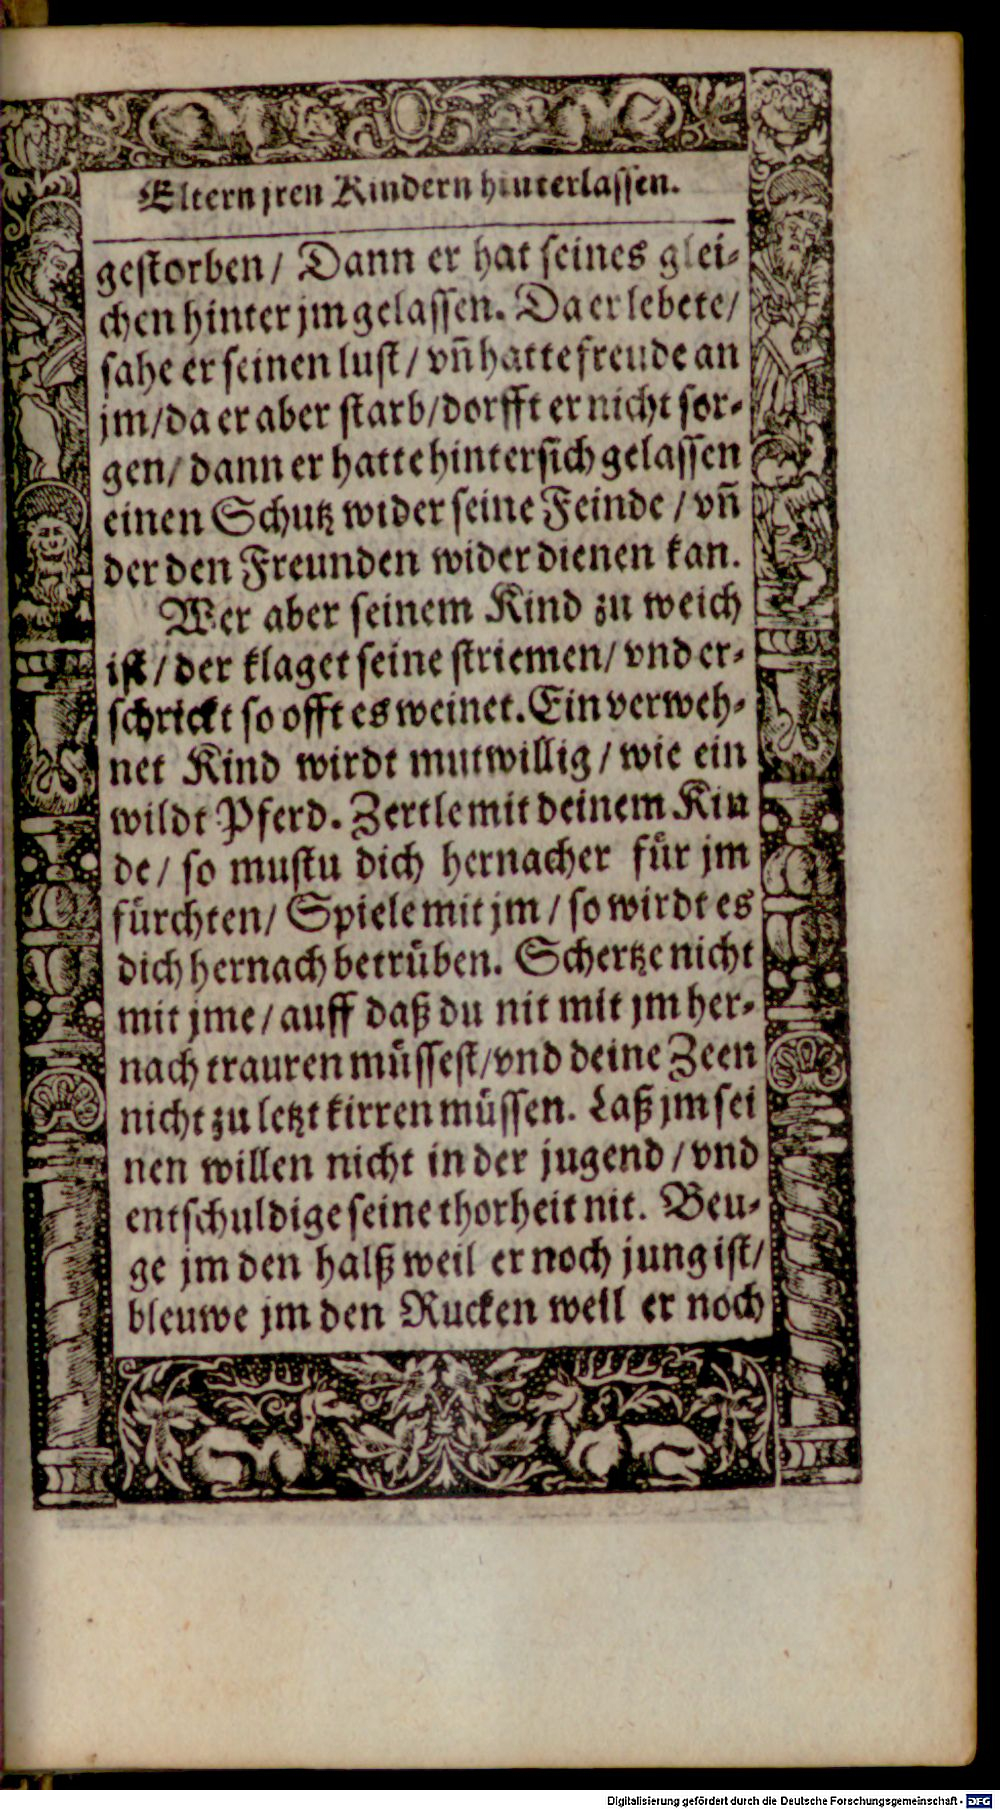 Eltern jren Kindern hinterlassen.
gestorben / Dann er hat seines glei⸗
chen hinter jm gelassen. Da er lebete /
sahe er seinen lust / vñ hatte freude an
jm / da er aber starb / dorfft er nicht sor⸗
gen / dann er hatte hinter sich gelassen
einen Schutz wider seine Feinde / vñ
der den Freunden wider dienen kan.
Wer aber seinem Kind zu weich
ist / der klaget seine striemen / vnd er⸗
schrickt so offt es weinet. Ein verweh⸗
net Kind wirdt mutwillig / wie ein
wildt Pferd. Zertle mit deinem Kin
de / so mustu dich hernacher für jm
fürchten / Spiele mit jm / so wirdt es
dich hernach betrüben. Schertze nicht
mit jme / auff daß du nit mit jm her⸗
nach trauren müssest / vnd deine Zeen
nicht zu letzt kirren müssen. Laß jm sei
nen willen nicht in der jugend / vnd
entschuldige seine thorheit nit. Beu⸗
ge jm den halß weil er noch jung ist /
bleuwe jm den Rucken weil er noch
Digitalisierung gefördert durch die Deutsche Forschungsgemeinschaft - DFG